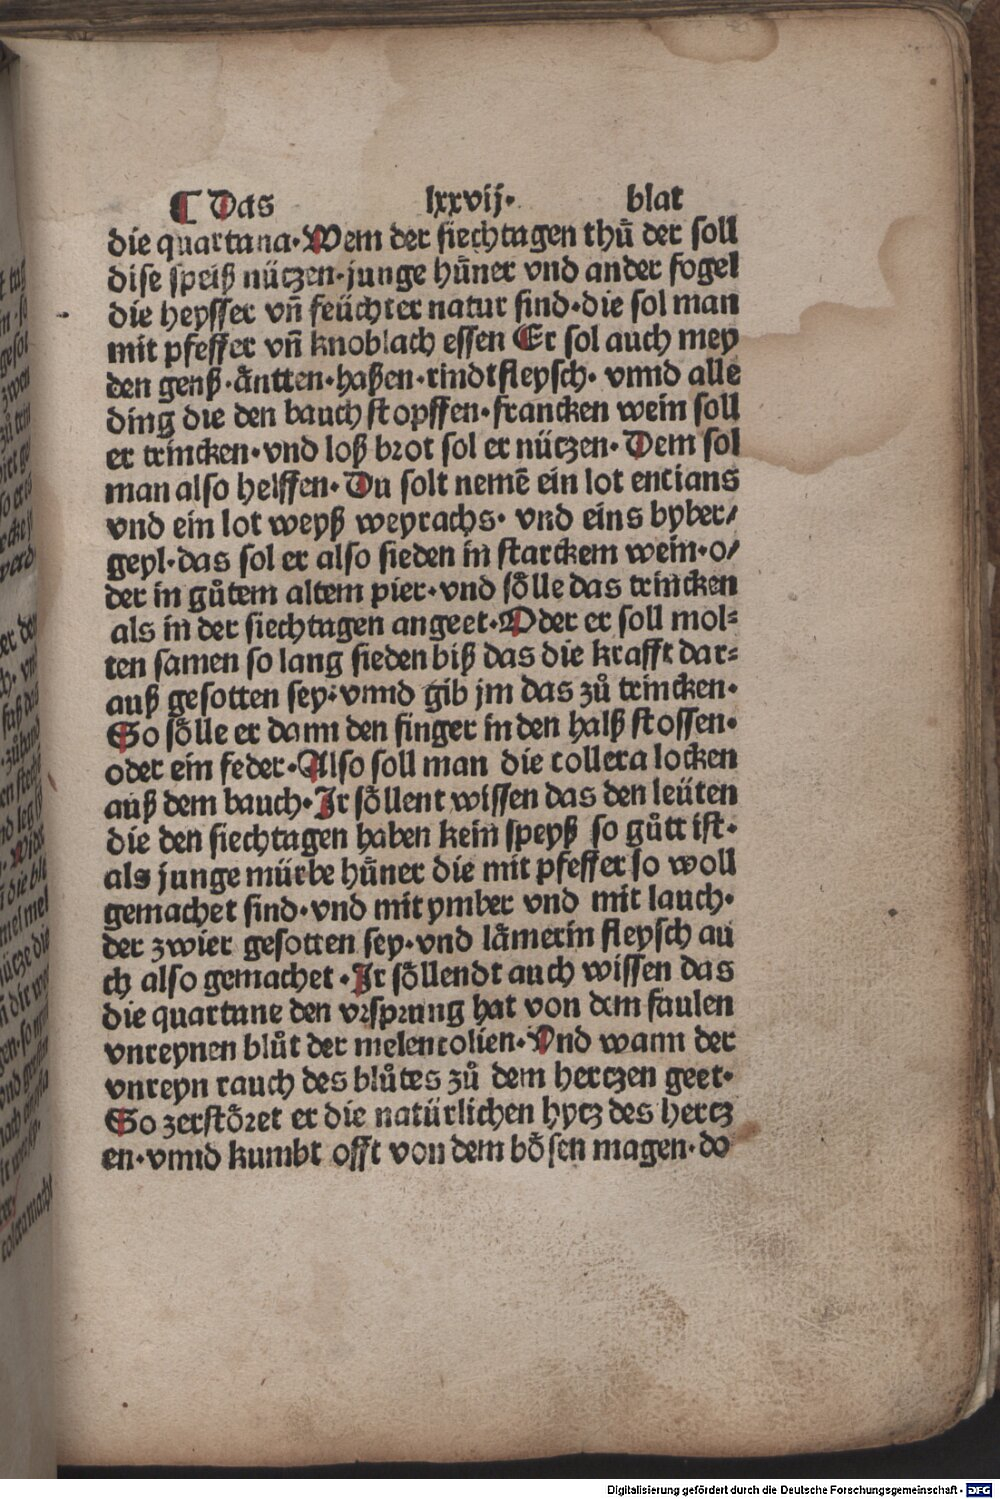 ¶ Das lxxvij· blat
die quartana·Wem der siechtagen thů der soll
dise speiß nützen·junge hůner vnd ander fogel
die heysser vñ feüchter natur sind·die sol man
mit pfeffer vñ knoblach essen Er sol auch mey
den genß·åntten·haßen·rindtfleysch· vnnd alle
ding die den bauch stopffen·francken wein soll
er trincken·vnd loß brot sol er nützen·Dem sol
man also helffen·Du solt nemē ein lot entians
vnd ein lot weyß weyrachs· vnd eins byber/
geyl·das sol er also sieden in starckem wein·o/
der in gůtem altem pier·vnd sőlle das trincken
als in der siechtagen angeet·Oder er soll mol⸗
ten samen so lang sieden biß das die krafft dar⸗
auß gesotten sey·vnnd gib jm das zů trincken·
So sőlle er dann den finger in den halß stossen·
oder ein feder·Also soll man die collera locken
auß dem bauch·Ir sőllent wissen das den leüten
die den siechtagen haben kein speyß so gůtt ist·
als junge mürbe hůner die mit pfeffer so woll
gemachet sind·vnd mit ymber vnd mit lauch·
der zwier gesotten sey·vnd låmerin fleysch au
ch also gemachet·Ir sőllendt auch wissen das
die quartane den vrsprung hat von dem faulen
vnreynen blůt der melencolien·Vnd wann der
vnreyn rauch des blůtes zů dem hertzen geet·
So zerstőret er die natürlichen hytz des hertz
en·vnnd kumbt offt von dem bősen magen·do
Digitalisierung gefördert durch die Deutsche Forschungsgemeinschaft - DFG